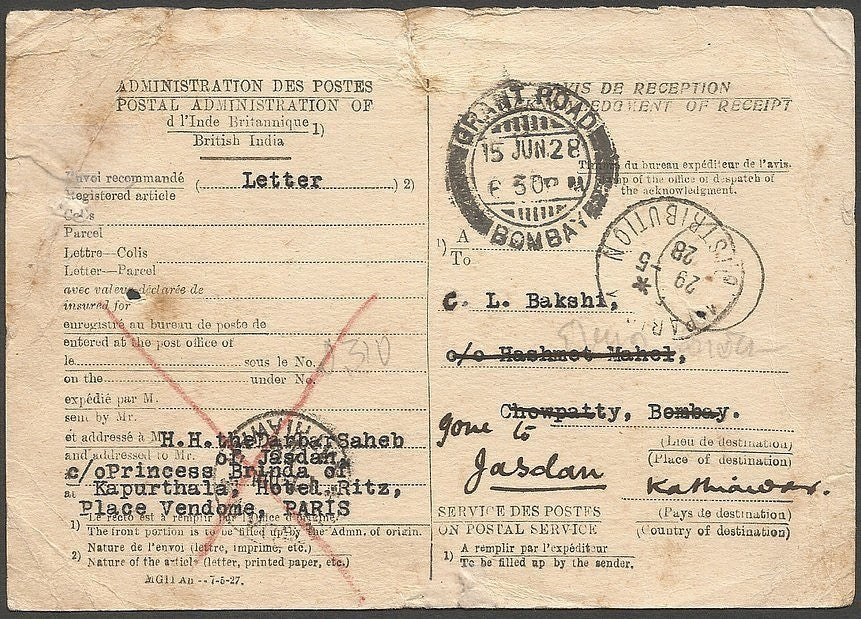 ADMINISTRATION DES POSTES
POSTAL ADMINISTRATION OF
d l'Inde Britannique 1)
British India
Envoi recommandé
Registered article
( Letter ) 2)
Colis
Parcel
Lettre—Colis
Letter—Parcel
avec valeur déclarée de
insured for
enregistré au bureau de poste de
entered at the post office of
le sous le No.
on the under No.
expédié par M.
sent by Mr.
et addressé à M
and addressed to Mr.
H.H.the Darbar Saheb
of Jasdan,
c/o Princess Brinda of
Kapurthala, Hotel Ritz,
Place Vendome, PARIS
1) Le recto est à remplir par l'office d'origine.
The front portion is to be filled up by the Admn. of origin.
2) Nature de l'envoi (lettre, imprimé, etc.)
Nature of the article (letter, printed paper, etc.)
MG11 Ah --7-5-27.
AVIS DE RECEPTION
ACKNOWLEDGMENT OF RECEIPT
GRANT ROAD
15 JUN.28
6 30 P M
BOMBAY
Timbre du bureau expéditeur de l'avis.
Stamp of the office of despatch of
the acknowledgment.
DISTRIBUTION
29
5
28
PARIS
1) A
To
C. L. Bakshi,
c/o Hashmet Mahel,
Chowpatty, Bombay.
gone to
(Lieu de destination)
(Place of destination)
Jasdan
Kathiawar.
SERVICE DES POSTES
ON POSTAL SERVICE
(Pays de destination)
(Country of destination)
1) A remplir par l'expéditeur
To be filled up by the sender.